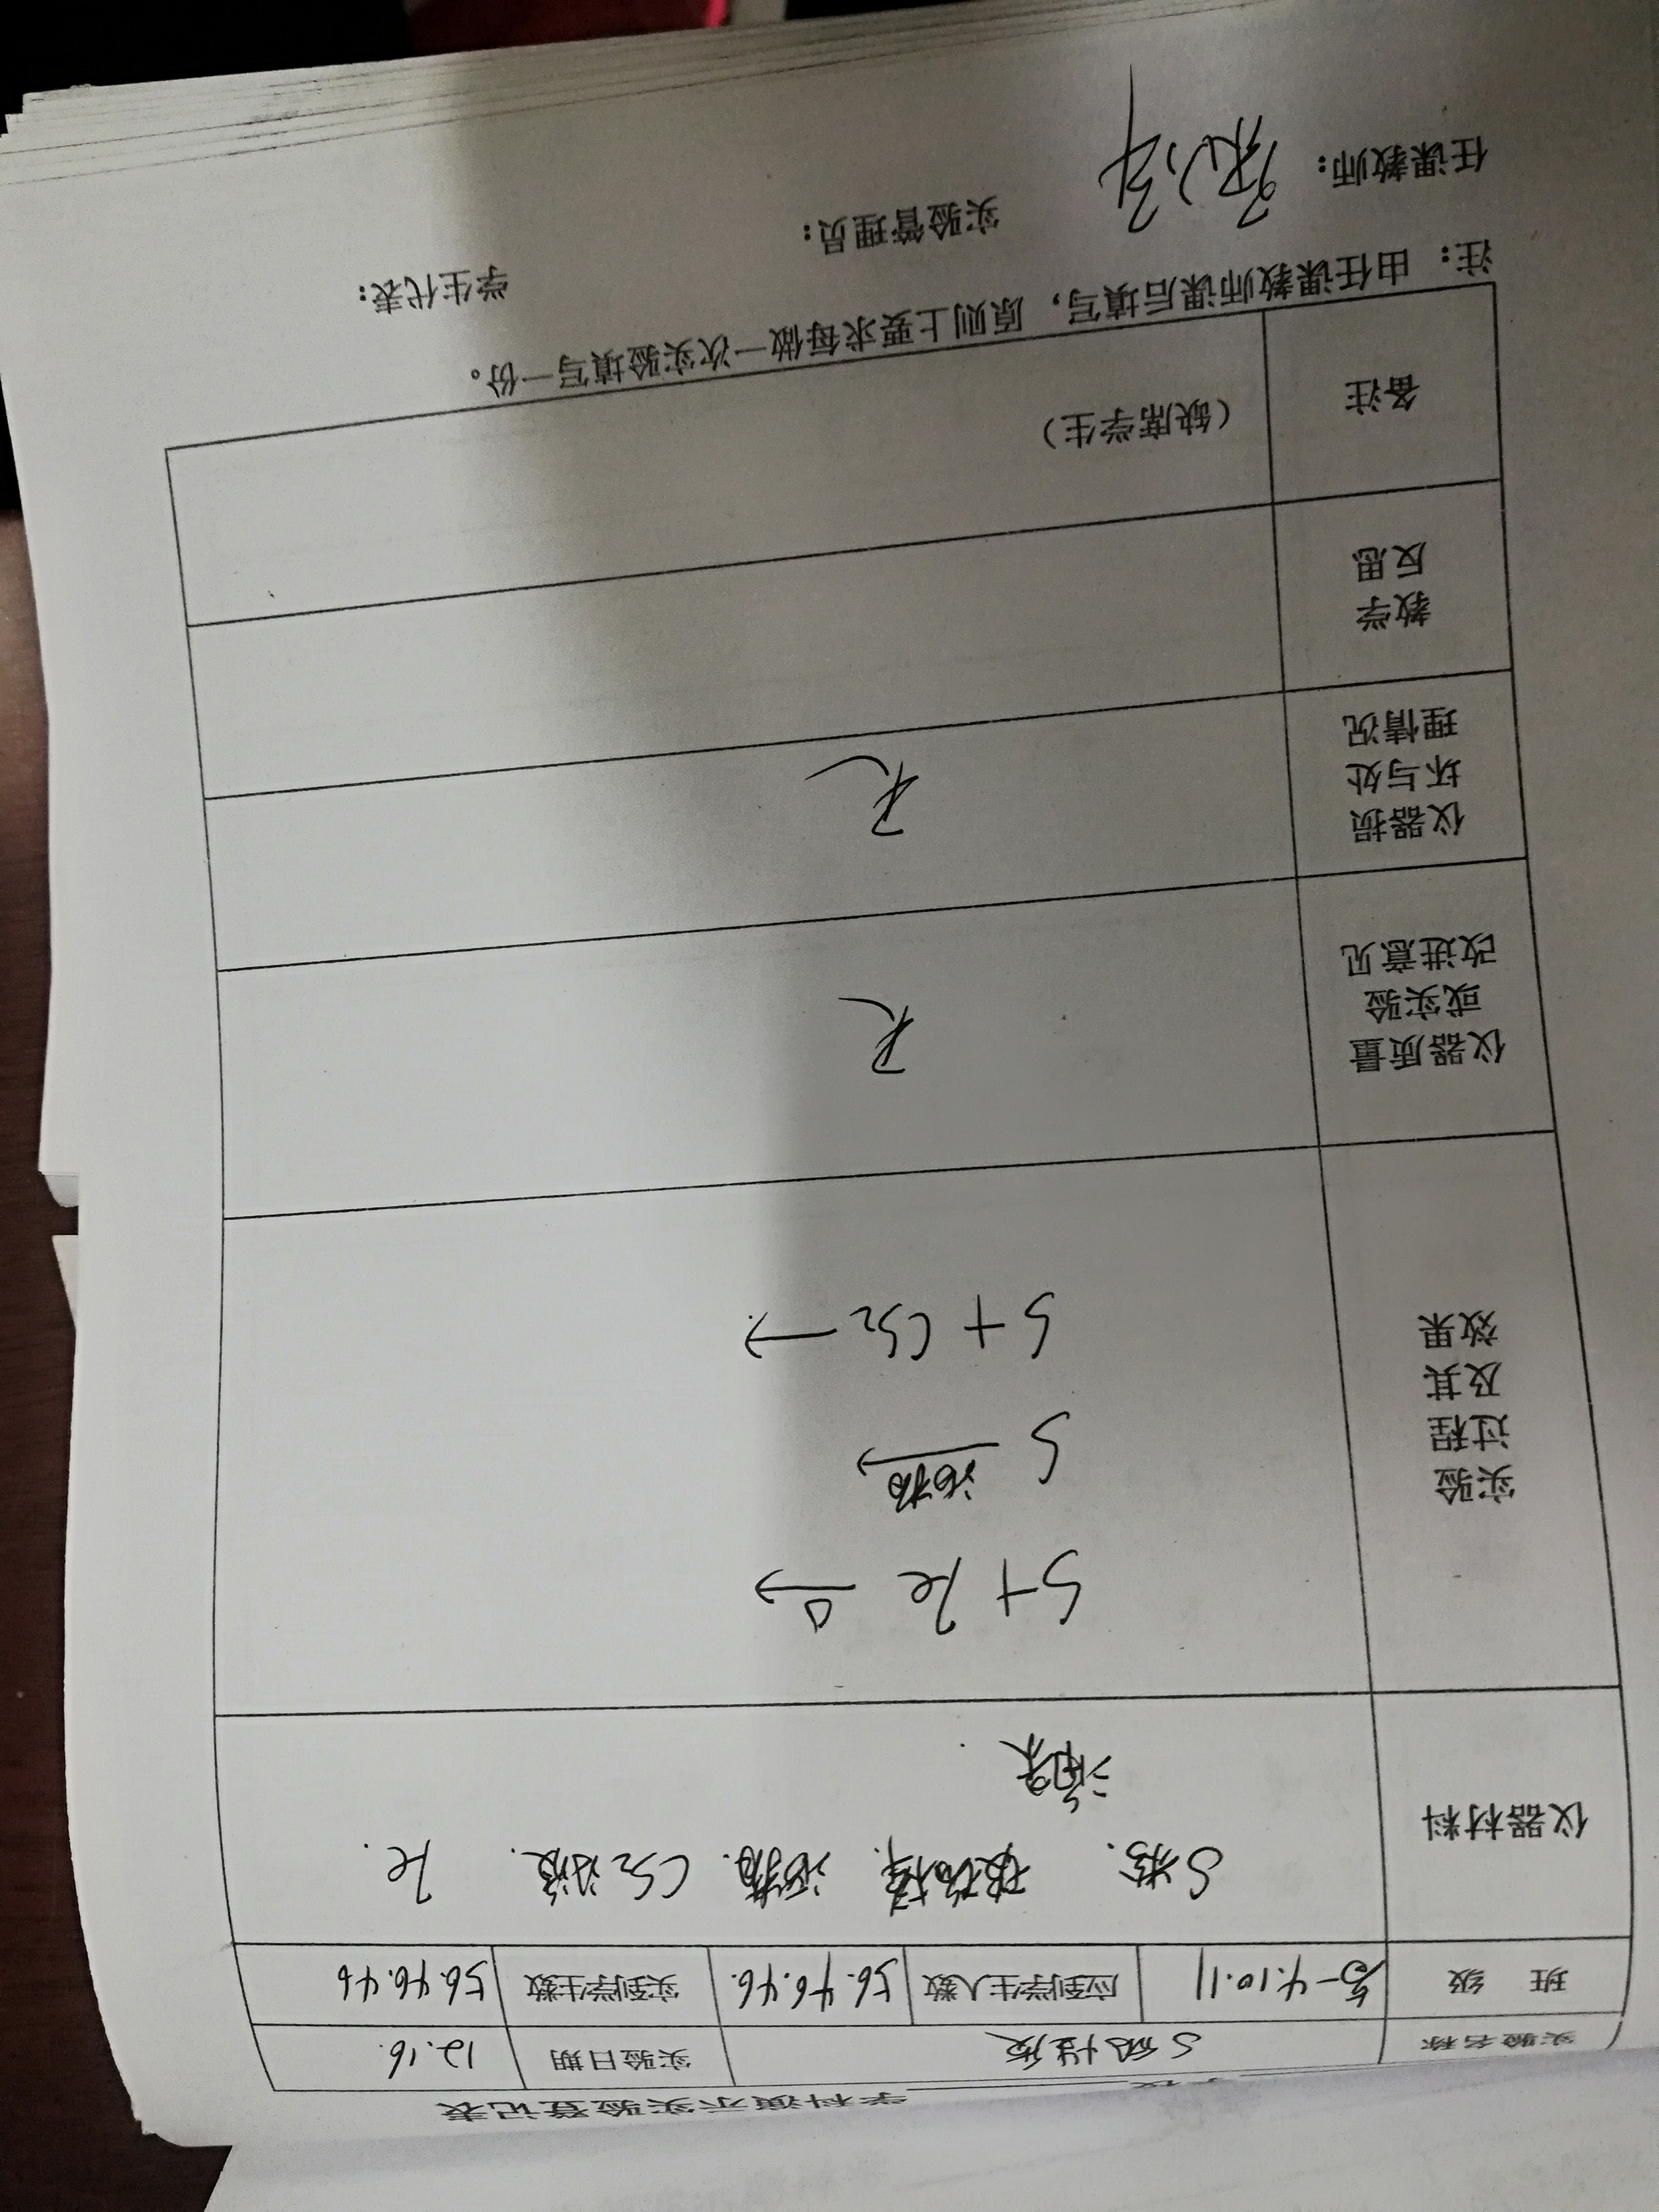 学科演示实验登记表
实验名称 S的性质 实验日期 12.16.
班 级 高一4.10.11 应到学生人数 56.46.46. 实到学生数 56.46.46
仪器材料 S粉. 玻璃棒. 酒精. CS2溶液. Fe.
实验过程及其效果
S + Fe △→
S 酒精→
S + CS2 →
仪器质量或实验改进意见 无
仪器损坏与处理情况 无
教学反思
备注 (缺席学生)
注: 由任课教师课后填写, 原则上要求每做一次实验填写一份。
任课教师: 实验管理员: 学生代表: